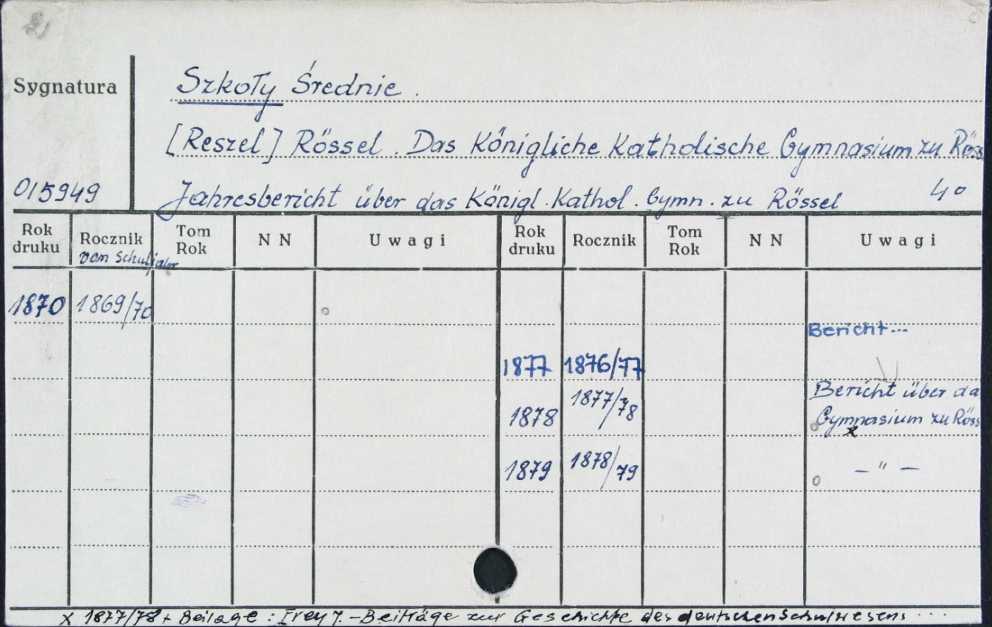 Sygnatura
Szkoły Średnie.
[Reszel] Rössel. Das Königliche Katholische Gymnasium zu Röss
015949
Jahresbericht über das Königl. Kathol. Gymn. zu Rössel 4o
Rok druku Rocznik Tom Rok NN Uwagi Rok druku Rocznik Tom Rok NN Uwagi
vom Schuljahr
1870 1869/70
Bericht...
1877 1876/77
1878 1877/78 Bericht über da
Gymnasium zu Röss
x
1879 1878/79 – " –
x 1877/78 + Beilage: Frey J. – Beiträge zur Geschichte des deutschen Schulwesens ...